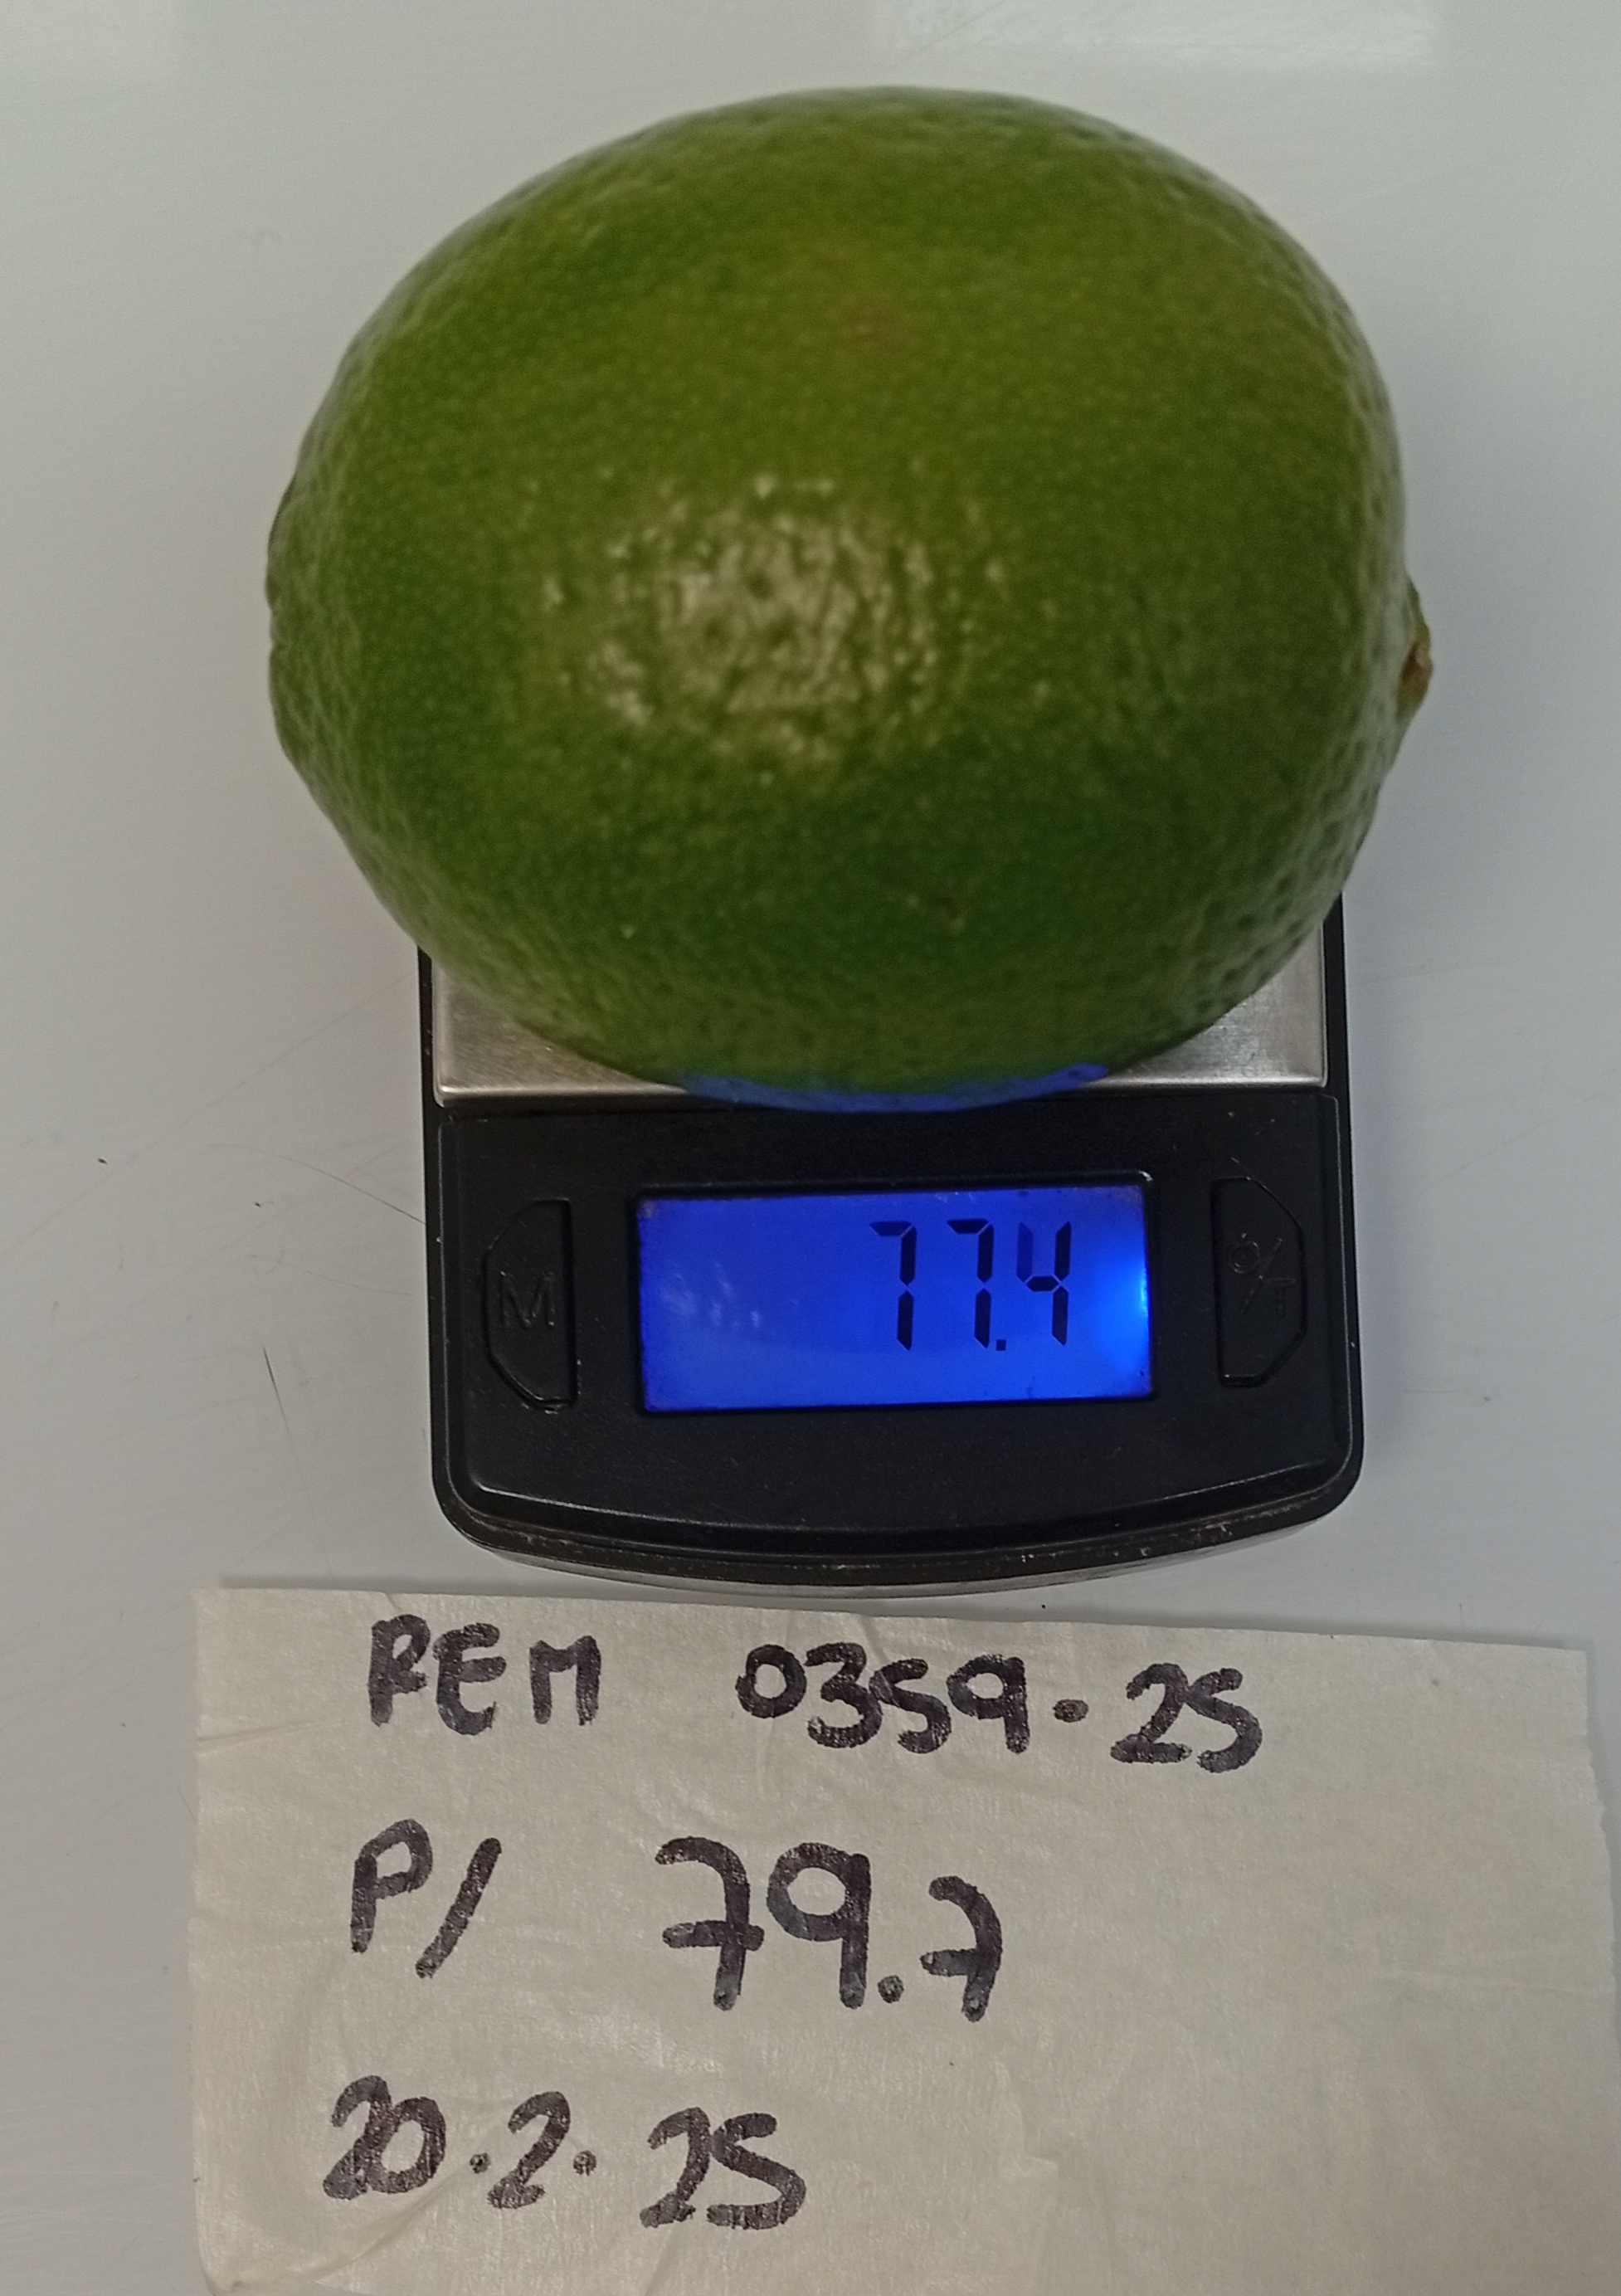 77.4
M
REM 0359.25
P/ 79.7
20.2.25